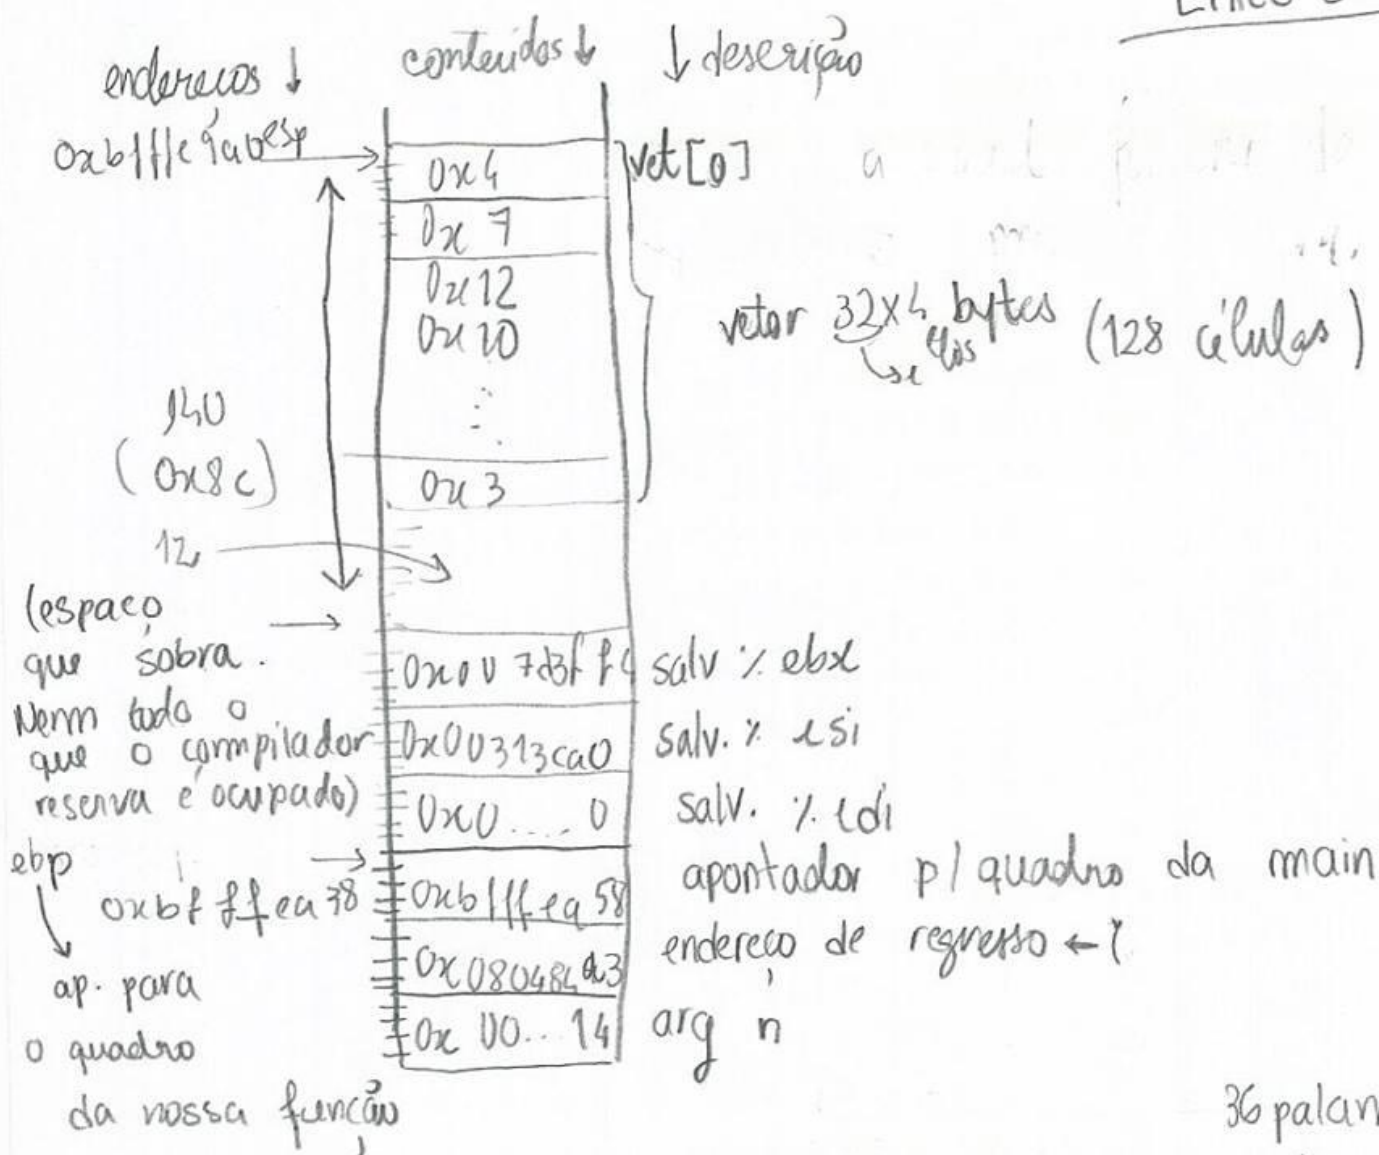 endereços ↓
conteúdos ↓
↓ descrição
0xbfffe9a0 esp →
0x4
vet[0]
0x7
0x12
0x10
vetor 32x4 bytes (128 células)
140
(0x8c)
0x3
12
(espaço
que sobra.
Nem todo o
que o compilador
reserva é ocupado)
salv % ebx
0x00313ca0 salv. % esi
0x0....0 salv. % edi
ebp
0xbfffea38
0xbfffea58 apontador p/ quadro da main
0x080484a3 endereço de regresso ←
0x00...14 arg n
ap. para
o quadro
da nossa função
36